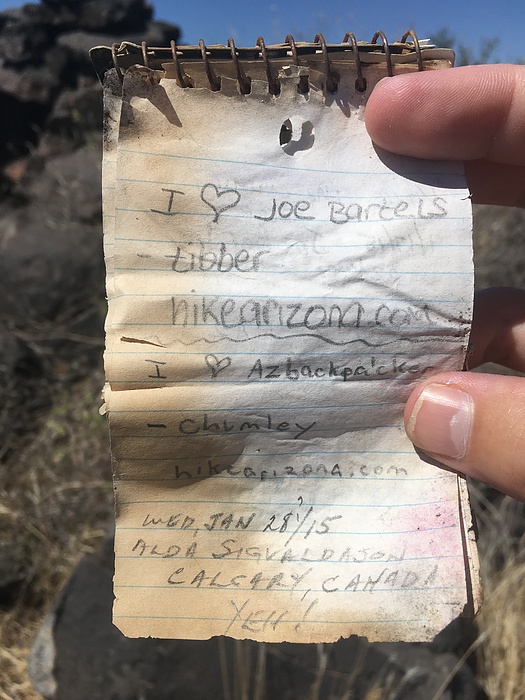 I ♡ Joe Bartels
- tibber
hikearizona.com
I ♡ Azbackpacker
- Chumley
hikearizona.com
WED, JAN 28'/15
ALDA SIGVALDASON
CALGARY, CANADA
YEH!